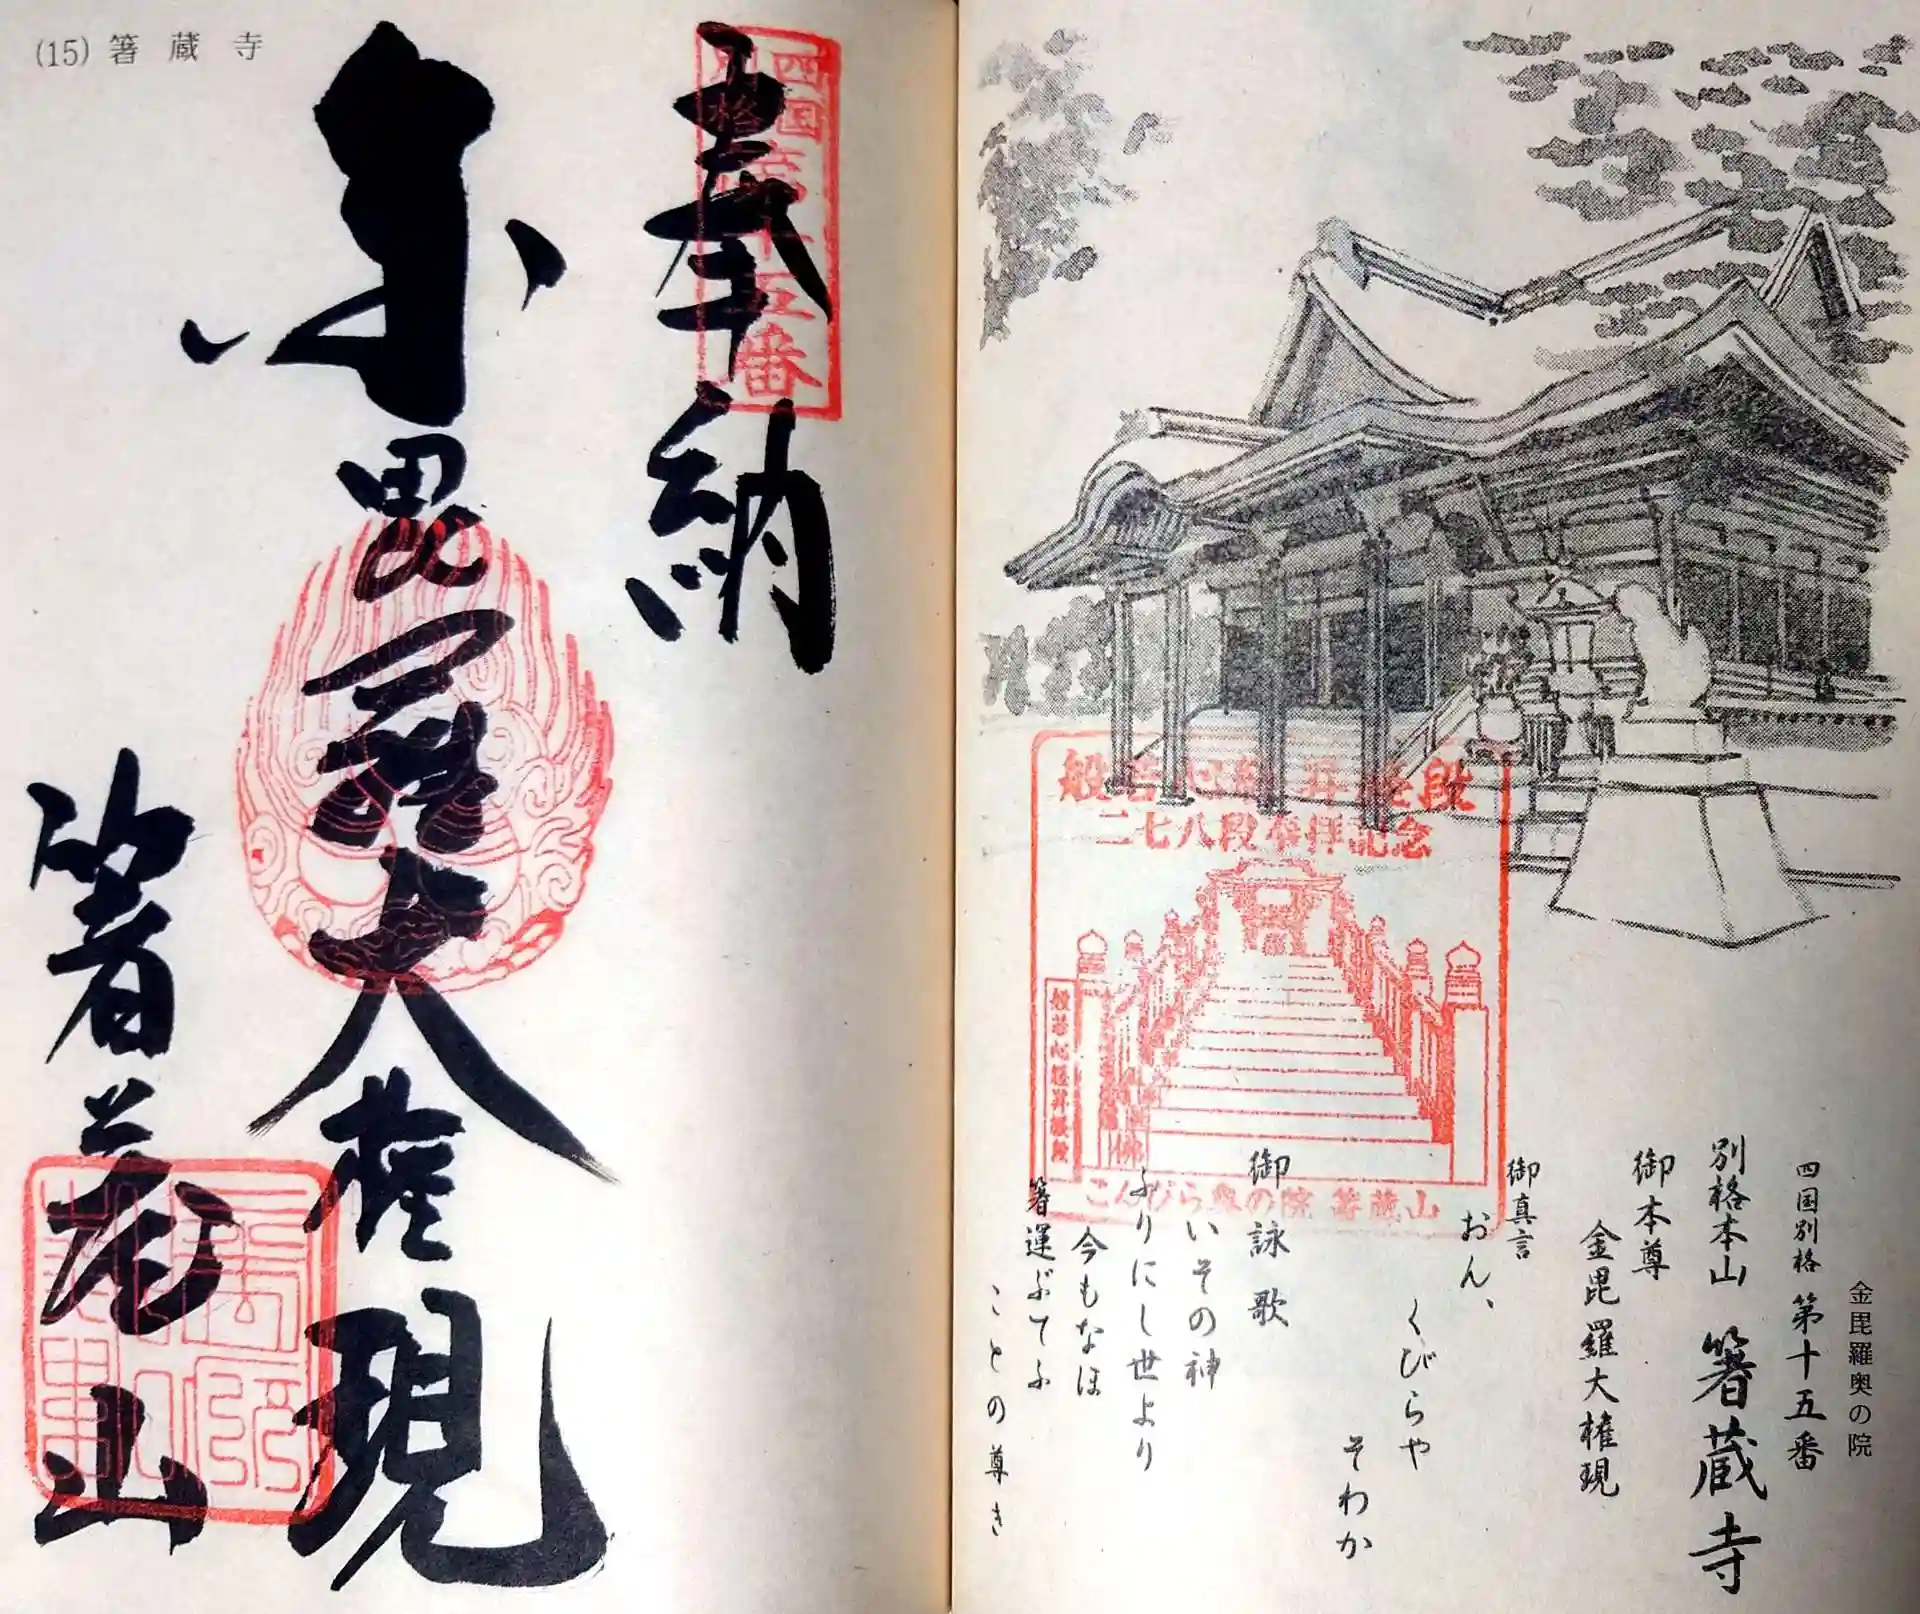 (15) 箸蔵寺
奉納
四国
別格
第十五番
金毘羅大権現
箸蔵山
金毘羅奥の院
四国別格 第十五番
別格本山 箸蔵寺
御本尊
金毘羅大権現
御真言
おん、
くびらや
そわか
御詠歌
いその神
ふりにし世より
今もなほ
箸運ぶてふ
ことの尊き
般若心経昇経段
二七八段奉拝記念
般若心経昇経段
こんぴら奥の院 箸蔵山